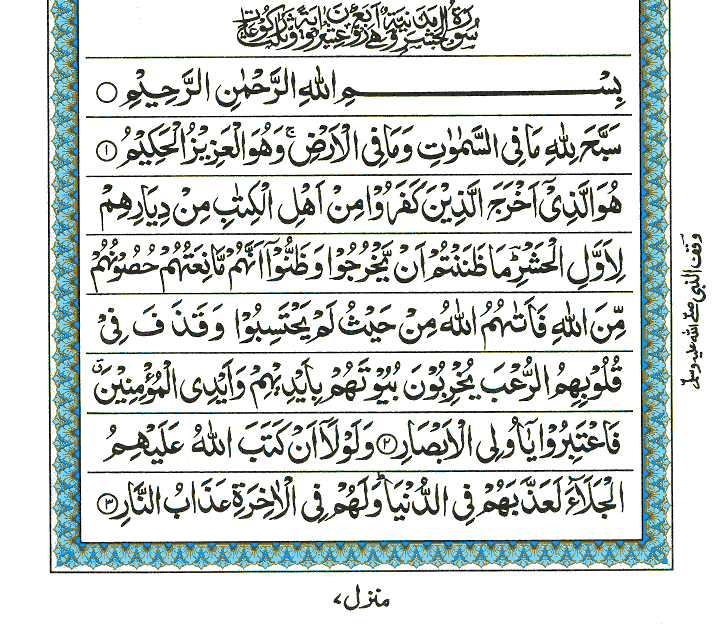 سُوْرَةُ الْحَشْرِ مَدَنِيَّةٌ وَّهِيَ اَرْبَعٌ وَّعِشْرُوْنَ اٰيَةً وَّثَلٰثُ رُكُوْعَاتٍ
بِسْمِ اللّٰهِ الرَّحْمٰنِ الرَّحِيْمِ ○
سَبَّحَ لِلّٰهِ مَا فِى السَّمٰوٰتِ وَمَا فِى الْاَرْضِ ۚ وَهُوَ الْعَزِيْزُ الْحَكِيْمُ ①
هُوَ الَّذِىْۤ اَخْرَجَ الَّذِيْنَ كَفَرُوْا مِنْ اَهْلِ الْكِتٰبِ مِنْ دِيَارِهِمْ
لِاَوَّلِ الْحَشْرِ ؕ مَا ظَنَنْتُمْ اَنْ يَّخْرُجُوْا وَظَنُّوْۤا اَنَّهُمْ مَّانِعَتُهُمْ حُصُوْنُهُمْ
مِّنَ اللّٰهِ فَاَتٰٮهُمُ اللّٰهُ مِنْ حَيْثُ لَمْ يَحْتَسِبُوْا وَقَذَفَ فِىْ
قُلُوْبِهِمُ الرُّعْبَ يُخْرِبُوْنَ بُيُوْتَهُمْ بِاَيْدِيْهِمْ وَاَيْدِى الْمُؤْمِنِيْنَ ۗ
فَاعْتَبِرُوْا يٰۤاُولِى الْاَبْصَارِ ② وَلَوْلَاۤ اَنْ كَتَبَ اللّٰهُ عَلَيْهِمُ
الْجَلَآءَ لَعَذَّبَهُمْ فِى الدُّنْيَا ؕ وَلَهُمْ فِى الْاٰخِرَةِ عَذَابُ النَّارِ ③
وقف النبی صلی اللہ علیہ وسلم
منزل ۷